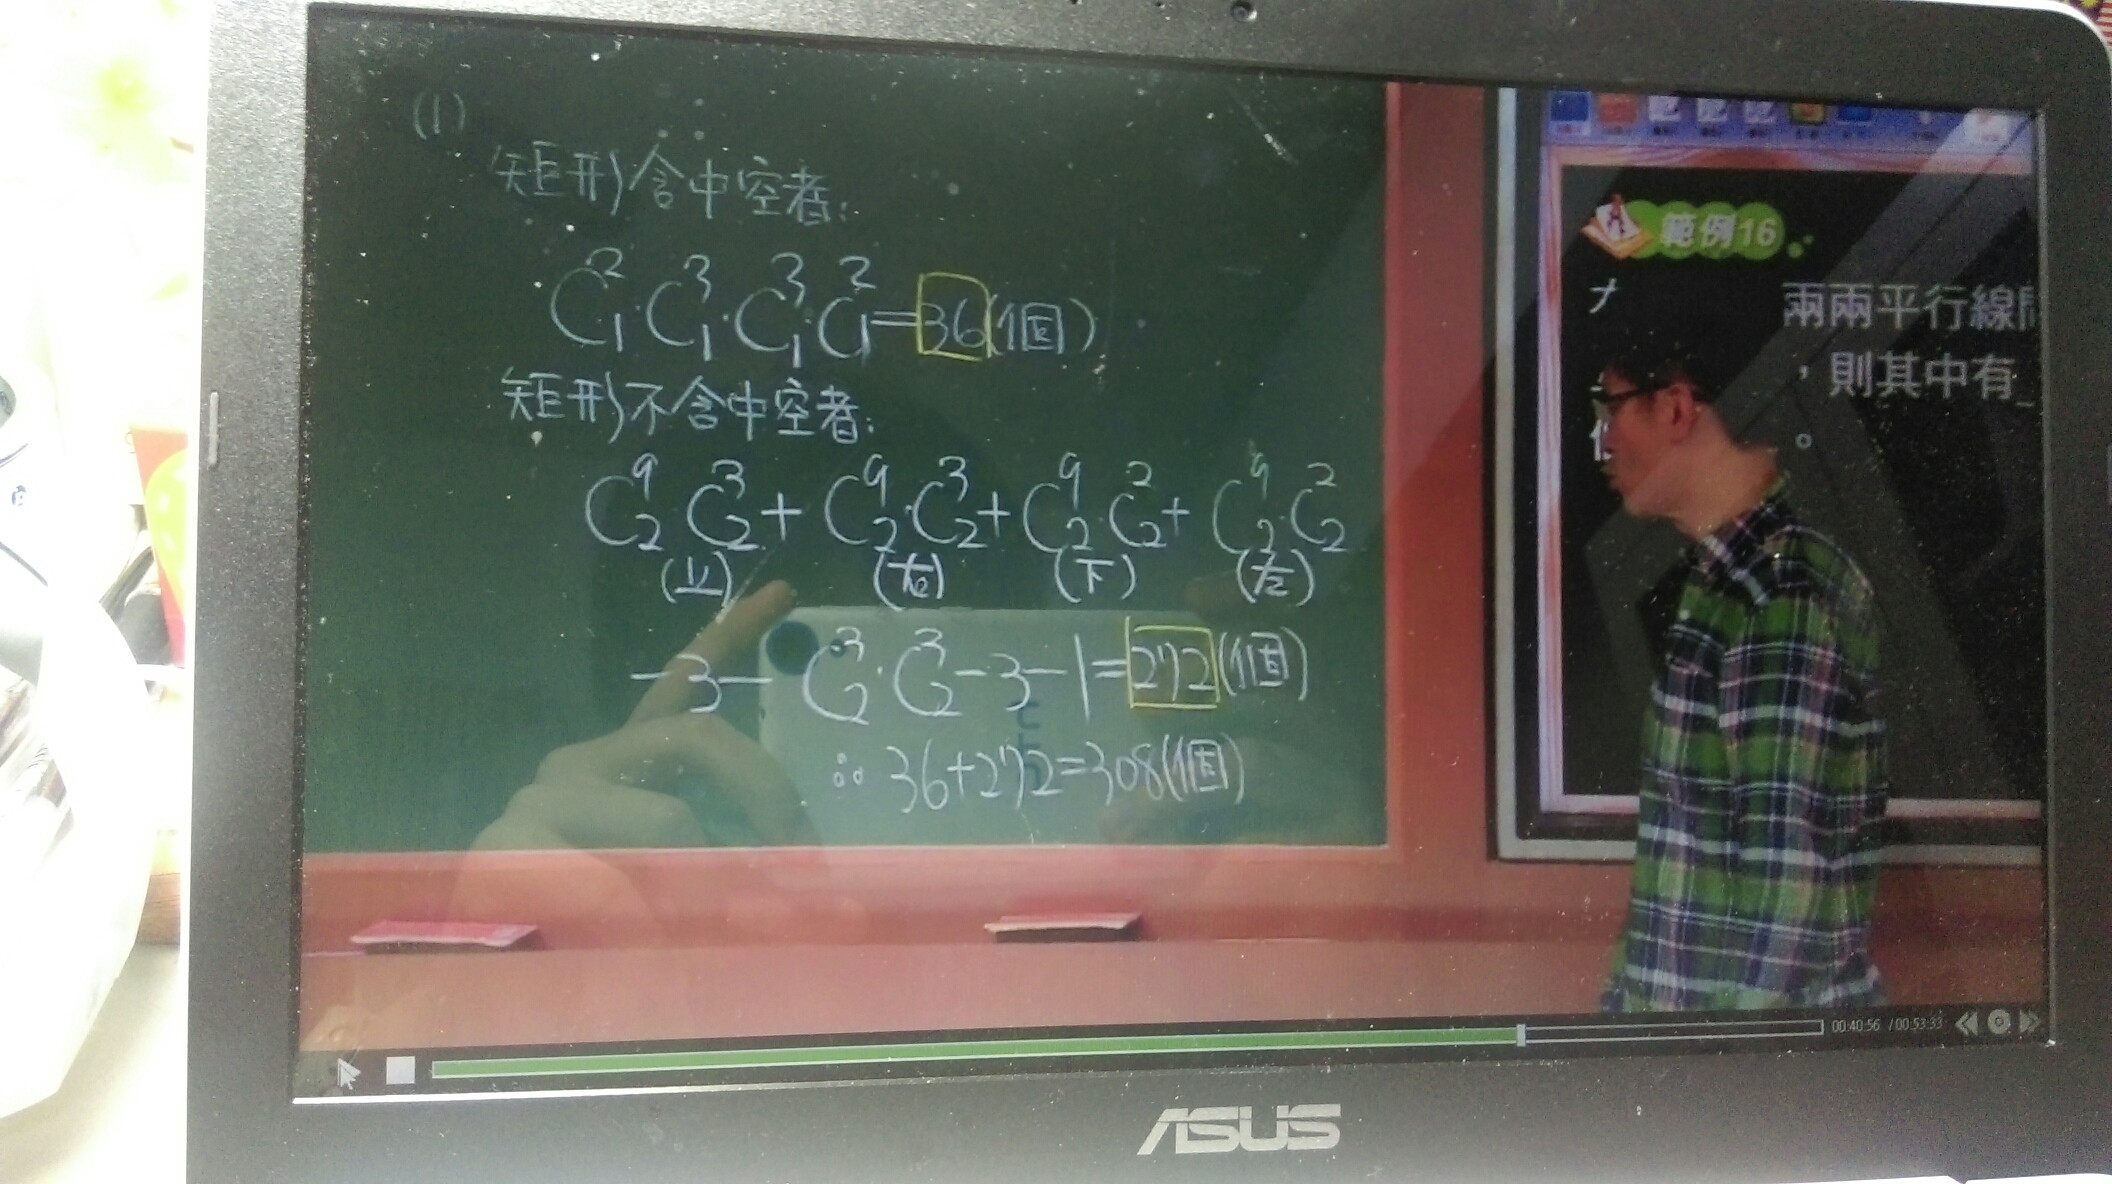 (1)
矩形含中空者:
C²₁·C³₁·C³₁·C²₁=36(個)
矩形不含中空者:
C⁹₂·C³₂+C⁹₂·C³₂+C⁹₂·C²₂+C⁹₂·C²₂
(上) (右) (下) (左)
-3-C³₂·C³₂-3-1=272(個)
∴36+272=308(個)
範例16
兩兩平行線
,則其中有_
。
00:40:56 / 00:53:33
ASUS